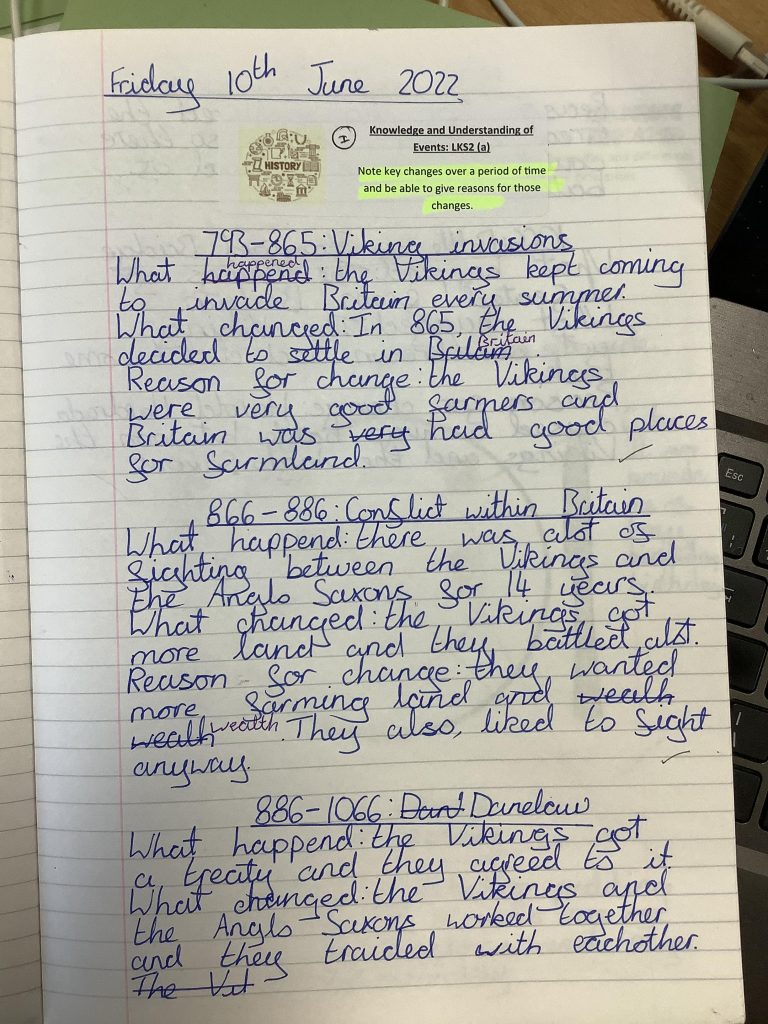 Friday 10th June 2022
HISTORY
I
Knowledge and Understanding of
Events: LKS2 (a)
Note key changes over a period of time
and be able to give reasons for those
changes.
793-865: Viking invasions
happened
What happend: the Vikings kept coming
to invade Britain every summer.
What changed: In 865, the Vikings
Britain
decided to settle in Britain.
Reason for change: the Vikings
were very good farmers and
Britain was very had good places
for farmland.
866-886: Conflict within Britain
What happend: there was alot of
fighting between the Vikings and
the Anglo Saxons for 14 years.
What changed: the Vikings got
more land and they battled alot.
Reason for change: they wanted
more farming land and wealth
wealth wealth. They also, liked to fight
anyway.
886-1066: Dant Danelaw
What happend: the Vikings got
a treaty and they agreed to it.
What changed: the Vikings and
the Anglo Saxons worked together
and they traided with eachother.
The Vit
Esc